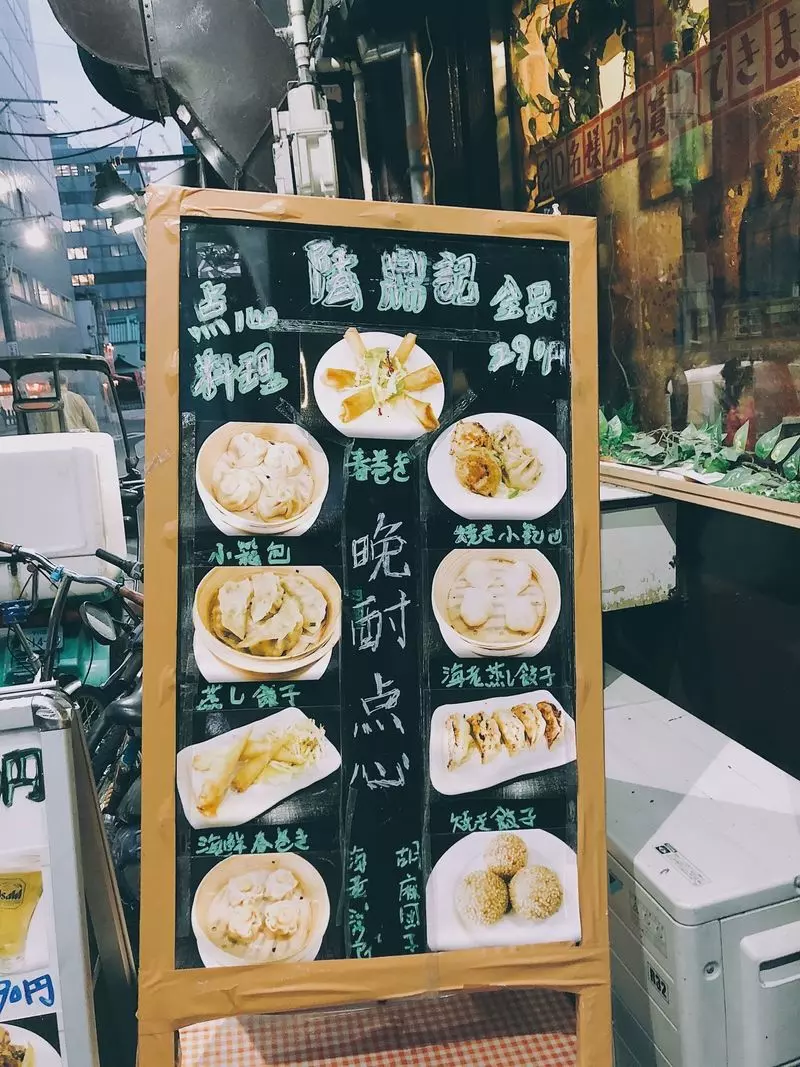 点心
料理
隆鼎記
全品
290円
春巻き
小籠包
焼き小籠包
晩酌点心
蒸し餃子
海老蒸し餃子
海鮮春巻き
焼き餃子
胡麻団子
20名様から貸切できま
円
Asahi
90円
R32